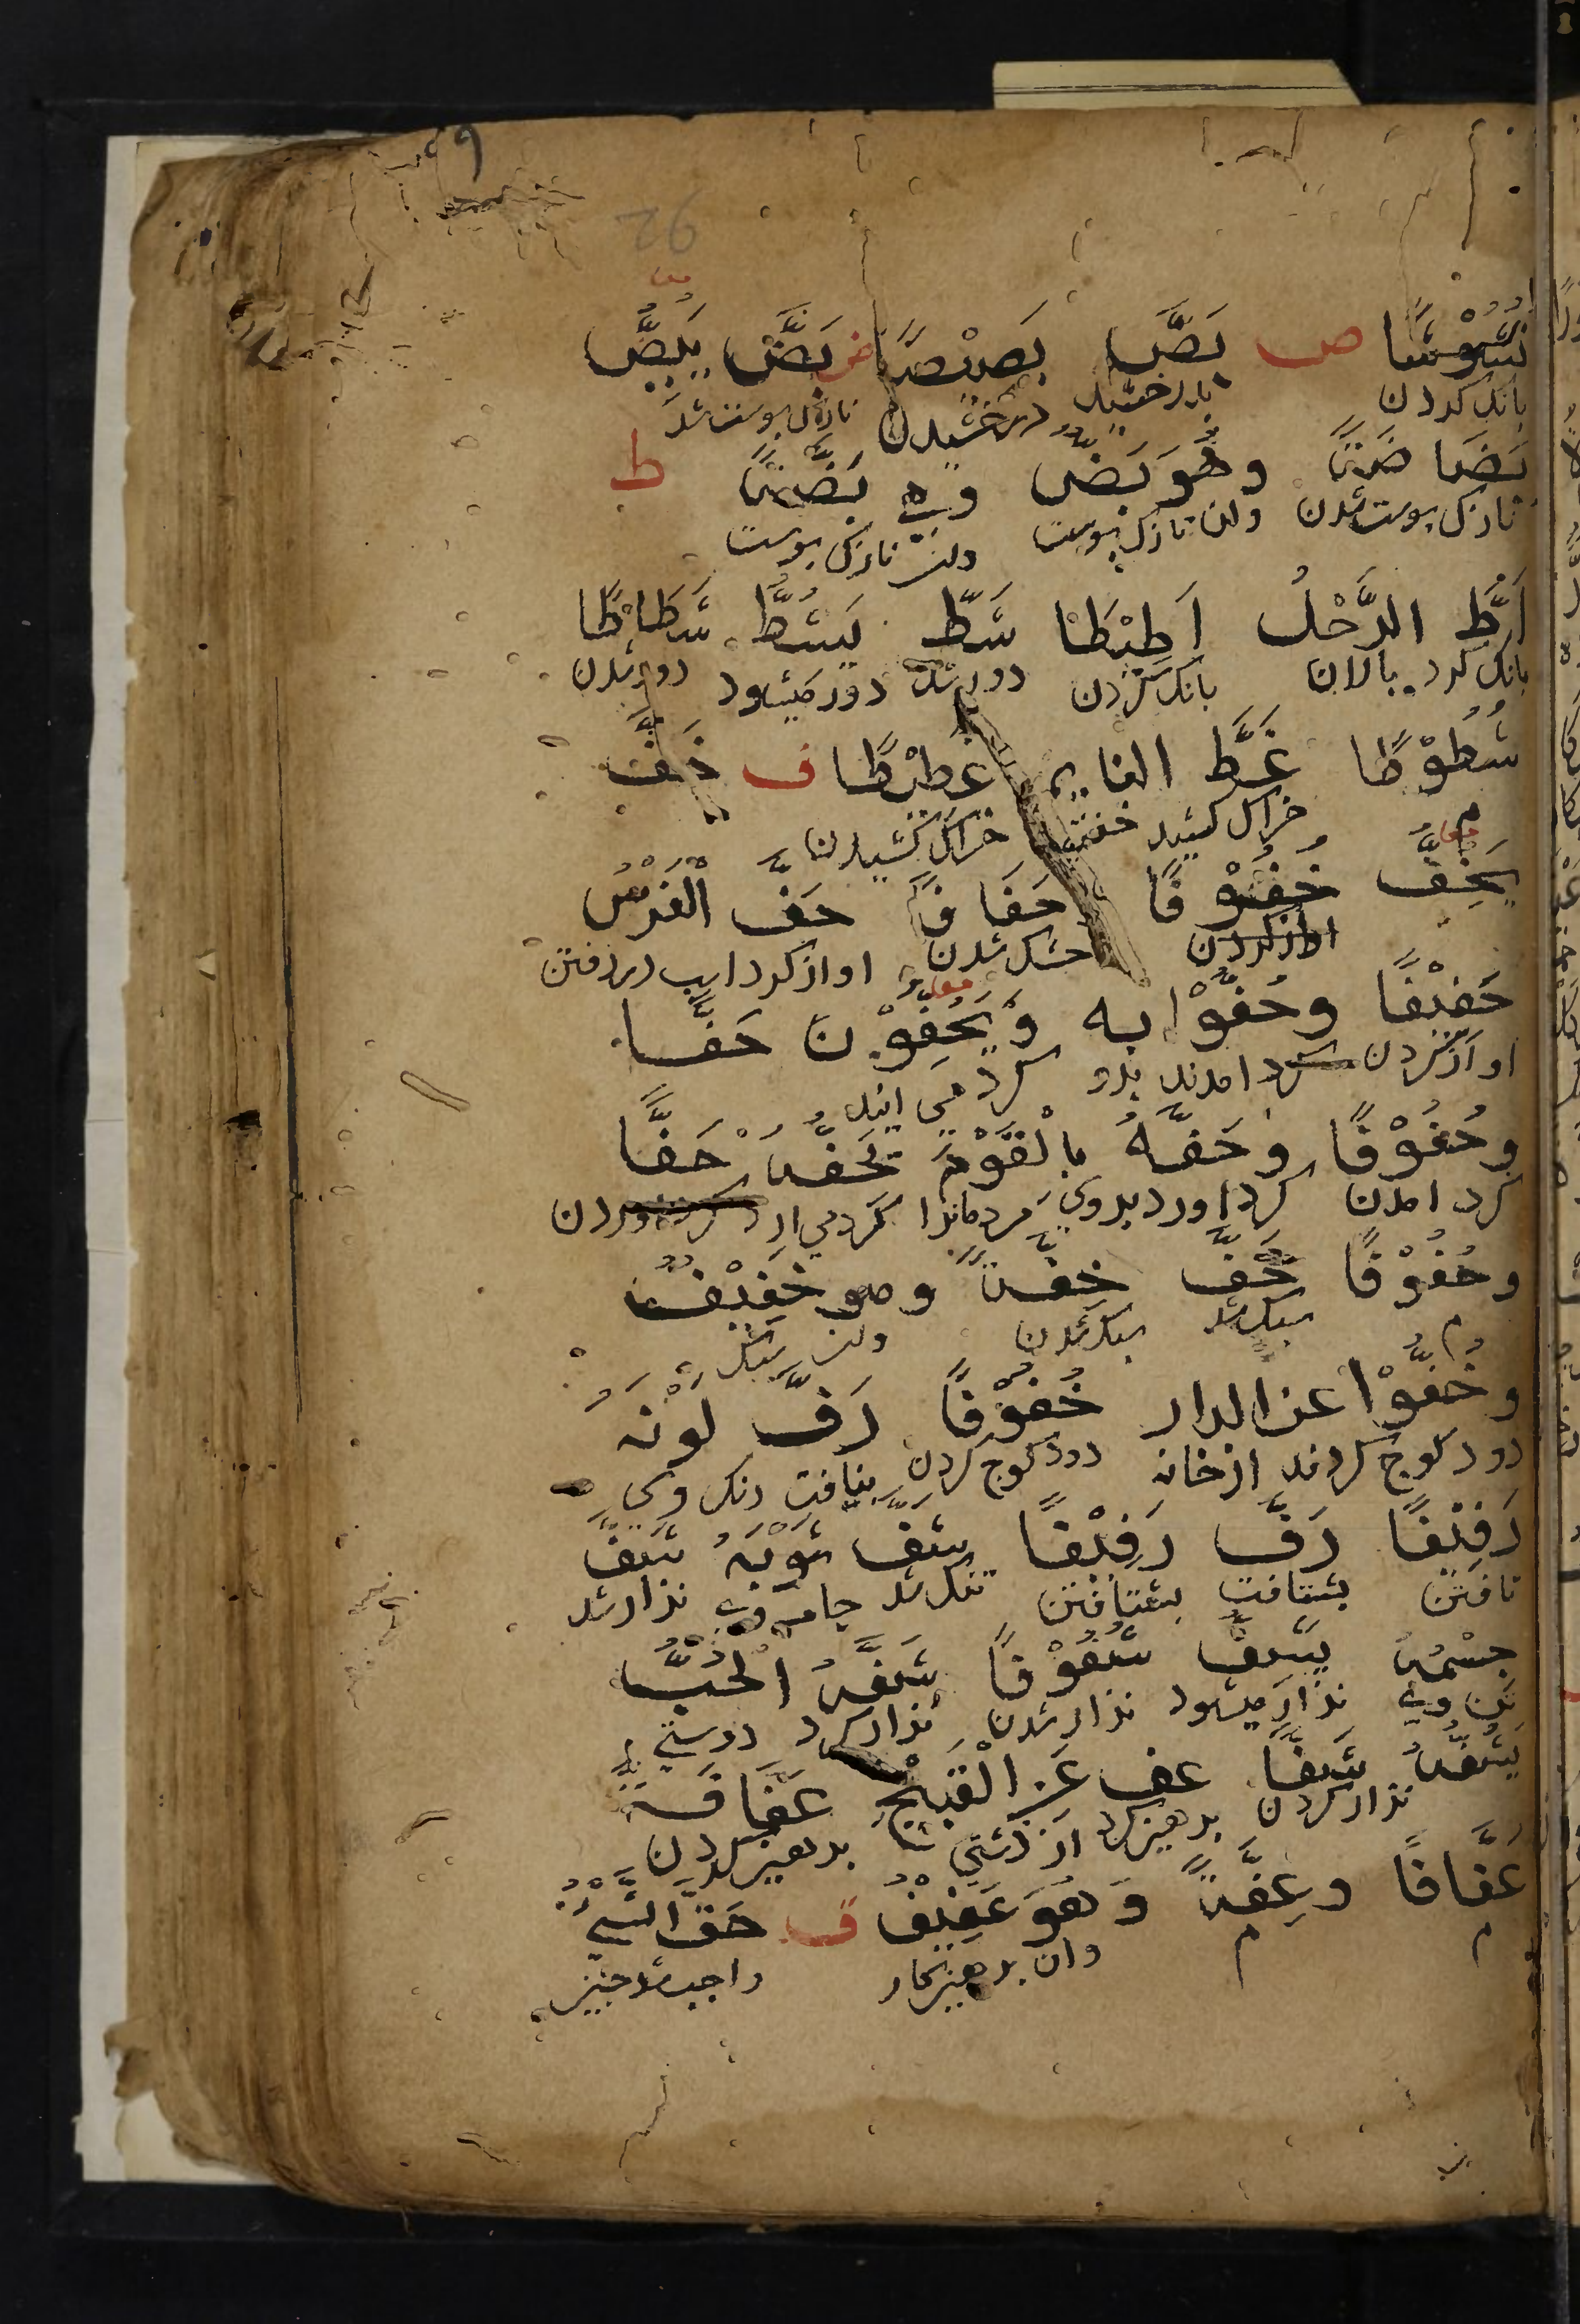 نُشُوْشًا ص بَصَّ بَصِيْصًا ض بَضَّ يَبِضُّ
بانك كردن بدرخشيد درخشيدن نازك پوست شد
بَضَاضَةً وهُوَ بَضٌّ وهي بَضَّةٌ ط
نازك پوست شدن وان نازك پوست وان نازك پوست
اَطَّ الرَّحْلُ اَطِيْطًا شَطَّ يَشُطُّ شَطَاطًا
بانك كرد پالان بانك كردن دور شد دور ميشود دور شدن
شُطُوْطًا غَطَّ النايم غَطِيْطًا ف جَفَّ
خراك كشيد خفته خراك كشيدن
يَجِفُّ جُفُوْفًا جَفَافًا حَفَّ الْفَرَسُ
خشك شدن اواز كرد اسب در رفتن
حَفِيْفًا وحَفُّوْا به وَيَحُفُّوْنَ حَفًّا
اواز كردن كرد امدند بدو كرد مي ايند
وحُفُوْفًا وحَفَّهُ بِالْقَوْمِ يَحُفُّهُ حَفًّا
كرد امدن كرد اورد بدوي مردمانرا كرد مي ارد كرد اوردن
وحُفُوْفًا خَفَّ خِفَّةً وهو خَفِيْفٌ
سبك شد سبك شدن وان سبك
وخَفُّوْا عن الدار خُفُوْفًا رَفَّ لَوْنُهُ
زود كوچ كردند از خانه زود كوچ كردن بتافت رنك وي
رَفِيْفًا زَفَّ زَفِيْفًا شَفَّ ثَوْبُهُ شَفَّ
تافتن بشتافت بشتافتن تنك شد جامه وي نزار شد
جِسْمُهُ يَشِفُّ شُفُوْفًا شَفَّهُ الْحُبُّ
تن وي نزار ميشود نزار شدن نزار كرد دوستي
يَشُفُّهُ شَفًّا عف عَنِ الْقَبِيْحِ عَفَافَةً
نزار كردن پرهيز كرد از زشتي پرهيز كردن
عَفَافًا وعِفَّةً وَهُوَ عَفِيْفٌ ق حَقَّ الشَّيْءُ
م م وان پرهيزكار واجب شد چيز